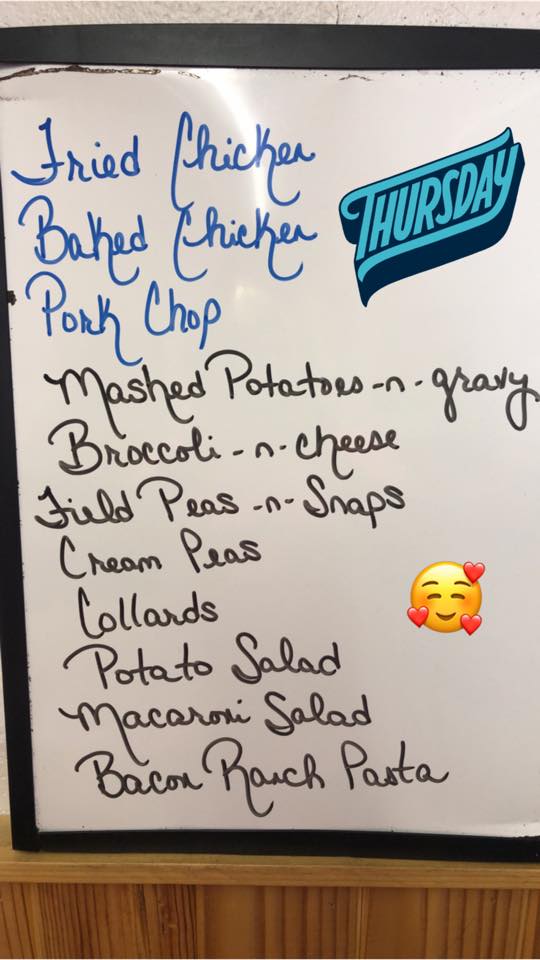 Fried Chicken
THURSDAY
Baked Chicken
Pork Chop
Mashed Potatoes-n-gravy
Broccoli-n-cheese
Field Peas-n-Snaps
Cream Peas
Collards
Potato Salad
Macaroni Salad
Bacon Ranch Pasta